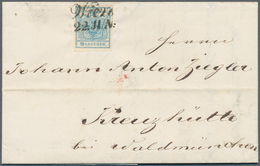 Wien
22. JUN:
Herrn
Johann Anton Ziegler
Kreuzhütte
bei Waldmünchen